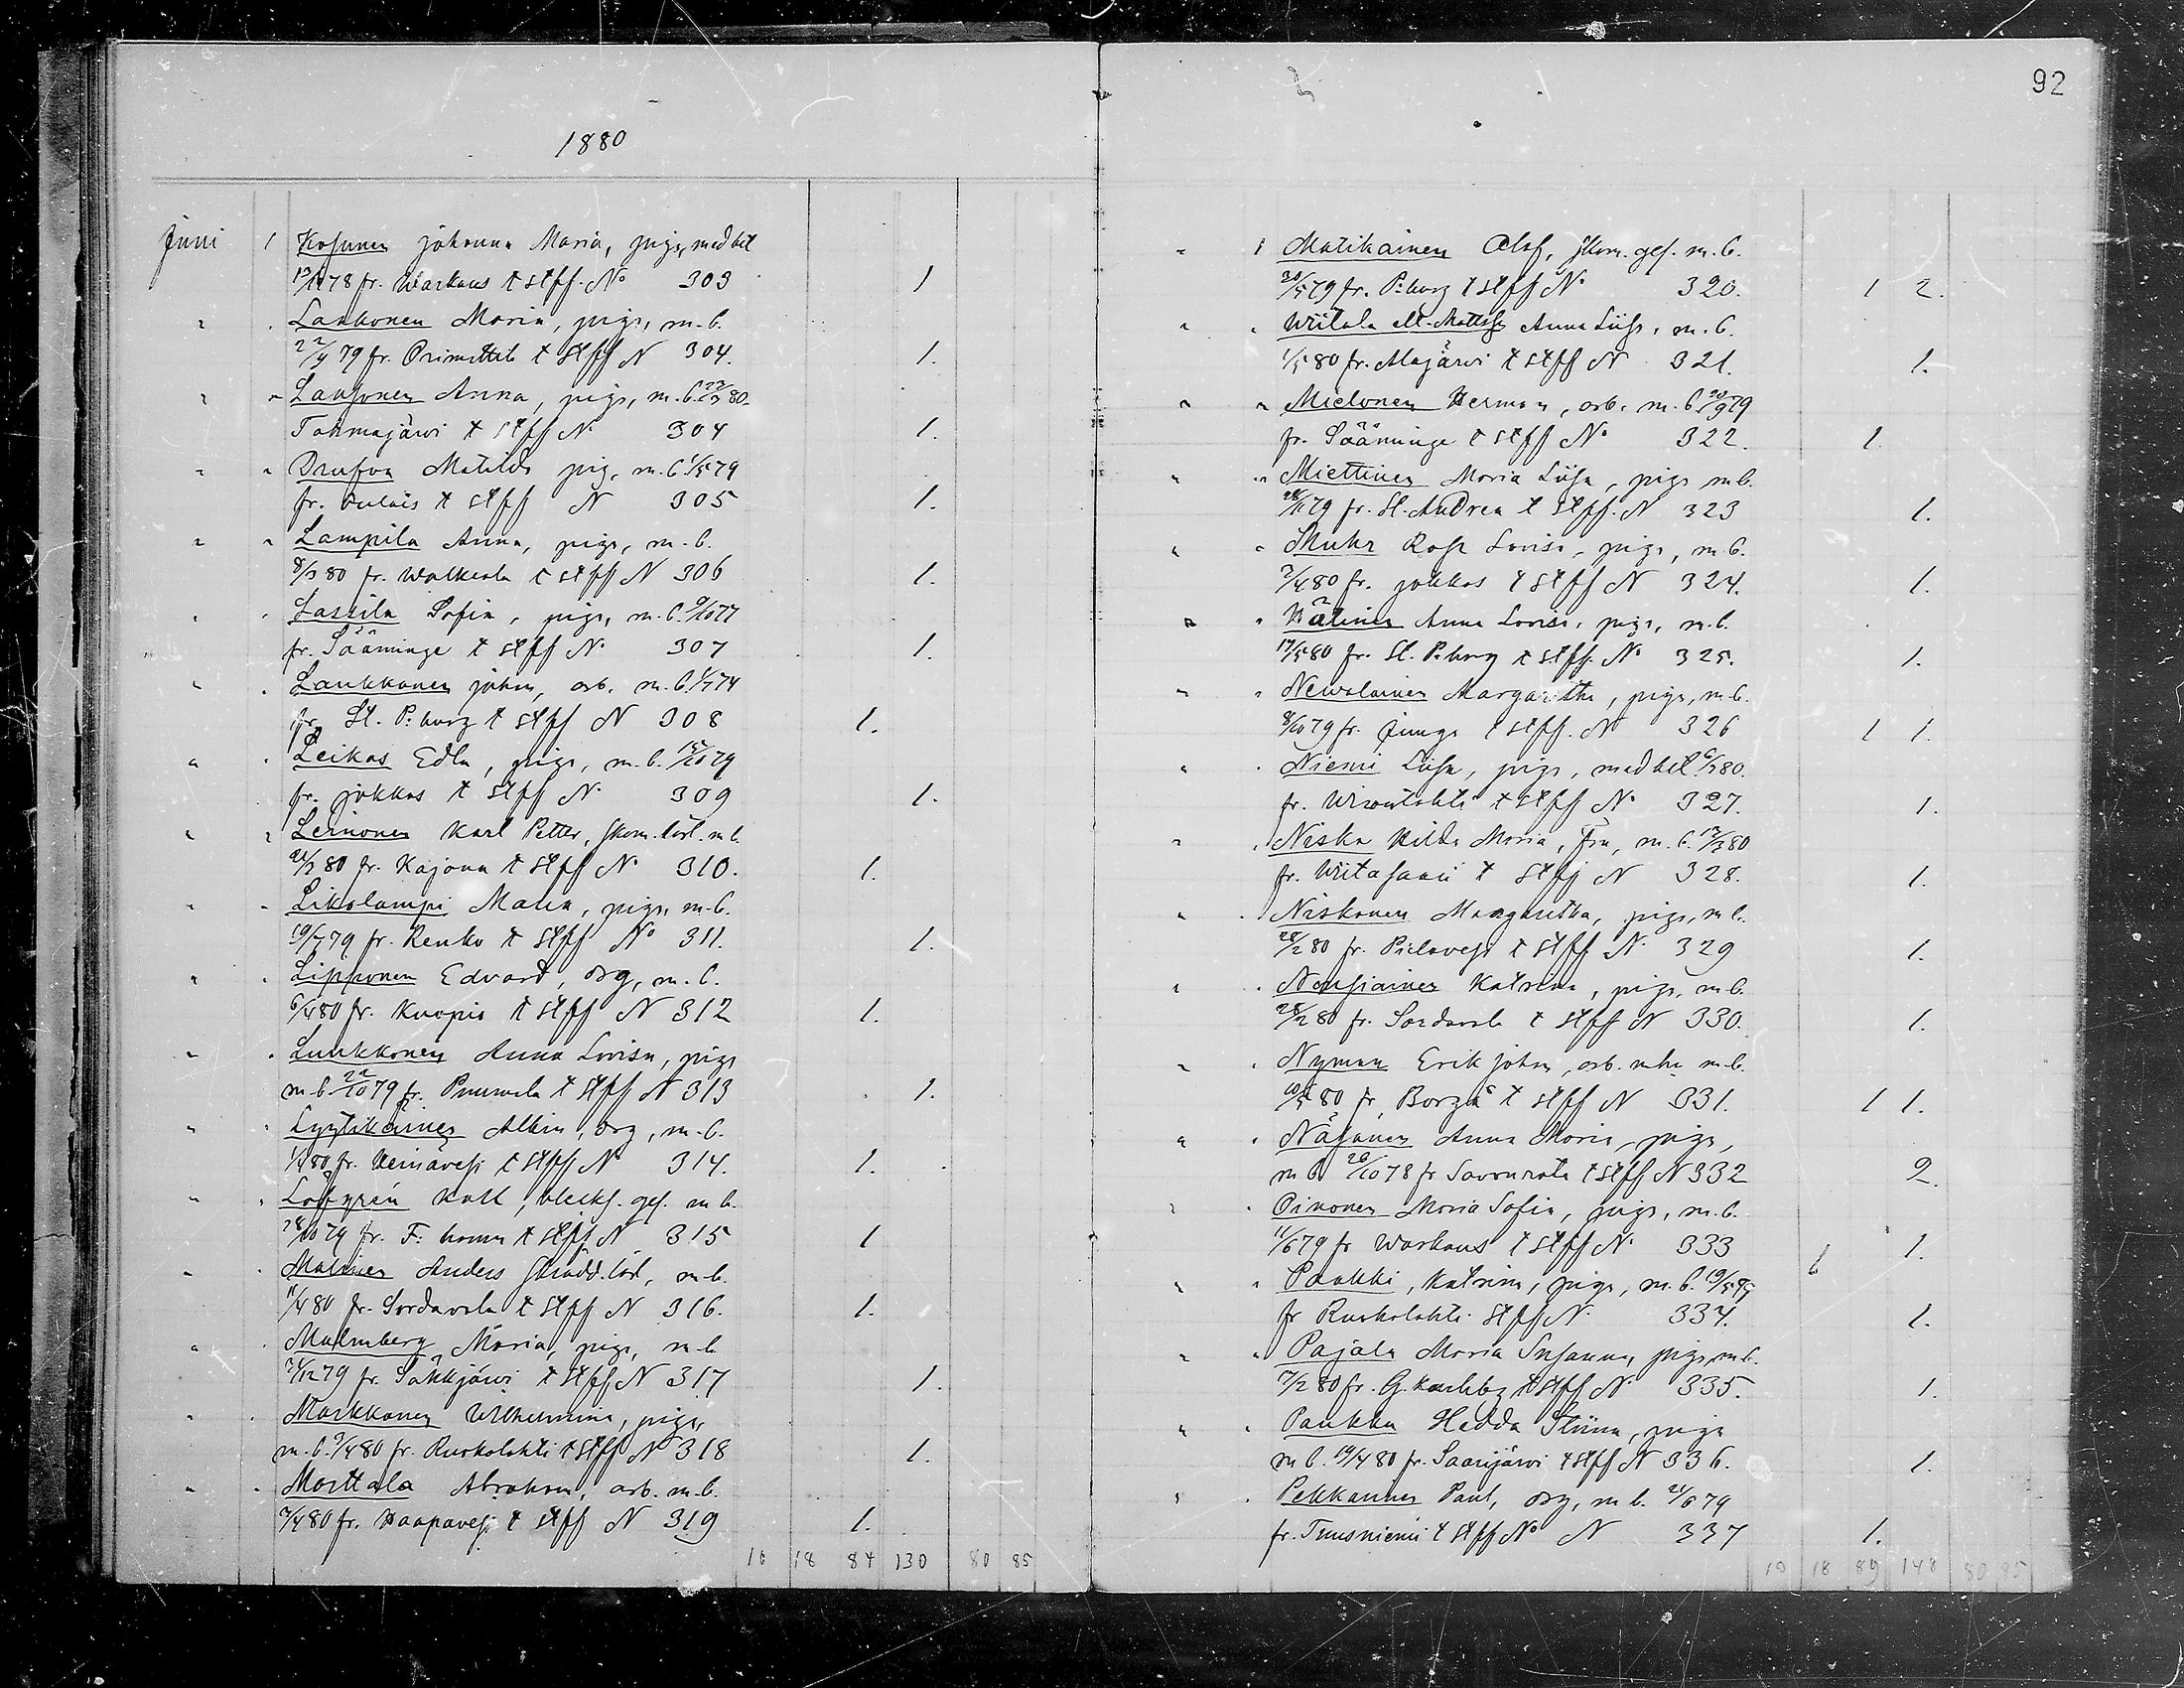 1880
Juni 1 Kosunen Johanna Maria, piga, med bet
13/12 78 fr. Warkaus t stff. No 303 1
" " Laukonen Maria, piga, m. b.
22/4 79 fr. t stff N 304. 1.
" " Lausonen Anna, piga, m. b. 23/3 80.
Tohmajärwi t stff N 304 1.
" " Drufva Matilda pig, m. b. 1/5 79
fr. Tulois t stff N 305 1.
" " Lampila Anna, piga, m. b.
8/3 80 fr. Walkeala t stff N 306 1.
" " Lassila Sofia, piga, m. b. 9/10 77
fr. Sääminge t stff N. 307 1.
" " Laukkanen Johan, arb. m. b. 1/7 74
fr. St. P:burg t stff N 308 1.
" " Leikas Edla, piga, m. b. 15/10 79
fr. Jokkas t stff N. 309 1.
" " Leinonen Karl Petter, skom. lärl. m b.
21/3 80 fr. Kajana t stff No 310. 1.
" " Likolampi Maria, piga, m. b.
19/7 79 fr. Renko t stff No 311. 1.
" " Lipponen Edvard, drg, m. b.
6/4 80 fr. Kuopio t stff N 312 1.
" " Luukkonen Anna Lovisa, piga
m. b. 22/10 79 fr. Puumala t stff N 313 1.
" " Lyytikäinen Albin, drg, m. b.
1/4 80 fr. Heinävesi t stff N 314. 1.
" " Löfgrén Karl, blecks. ges. m b.
28/10 79 fr. F:hamn t stff N 315 1
" " Malinen Anders skrädd. lärl, m. b.
11/4 80 fr. Sordavala t stff N 316. 1.
" " Malmberg Maria, piga, m b
24/12 79 fr. Säkkjärvi t stff N 317 1.
" " Markkanen Wilhelmina, piga,
m. b. 3/4 80 fr. Ruokolahti t stff No 318 1.
" " Marttala Abraham, arb. m. b.
2/4 80 fr. Haapavesi t stff N 319 1.
16 18 84 130 80 85
92
" 1 Matikainen Olof, skom. ges. m. b.
30/5 79 fr. P:burg t stff N. 320. 1 2.
" " Wiitala Anna Liisa, m. b.
1/5 80 fr. Alajärvi t stff N 321. 1.
" " Mielonen Herman, arb. m. b. 20/9 79
fr. Sääminge t stff No 322. 1.
" " Miettinen Maria Liisa, piga m b.
28/11 79 fr. St. Andrea t stff. N 323 1.
" " Muhr Rosa Lovisa, piga, m. b.
3/4 80 fr. Jokkas t stff N 324. 1.
" " Anna Lovisa, piga, m. b.
17/5 80 fr. St. P:burg t stff. No 325. 1.
" " Newalainen Margaritha, piga, m. b.
8/10 79 fr. Junga t stff. N 326 1 1.
" " Niemi Liisa, piga, med bet 6/3 80.
fr. Wirolahti t stff No 327. 1.
" " Niska Hilda Maria, Fru, m. b. 13/3 80
fr. Wiitasaari t stff N 328. 1.
" " Niskanen Margaretha, piga, m b.
28/2 80 fr. Pielavesi t stff N. 329 1.
" " Nousiainen Katrina, piga, m b.
28/2 80 fr. Sordavala t stff N 330. 1.
" " Nyman Erik Johan, arb. m hu m b.
10/5 80 fr. Borgå t stff N 331. 1 1.
" " Näsänen Anna Maria, piga,
m b 26/10 78 fr Savonranta t stff N 332 2.
" " Oinonen Maria Sofia, piga, m. b.
11/6 79 fr Warkaus t stff N. 333 1.
" " Paakki, Katrina, piga, m. b. 19/5 79
fr Ruokolahti stff N. 334. 1.
" " Pajala Maria Susanna, piga, m b.
7/2 80 fr. G. Karleby t stff N. 335. 1.
" " Paukku Hedda Stiina, piga
m b. 19/4 80 fr. Saarijärvi t stff N 336. 1.
" " Pekkanen Paul, drg, m b. 21/6 79
fr. Tuusniemi t stff No N 337 1.
19 18 89 148 80 95